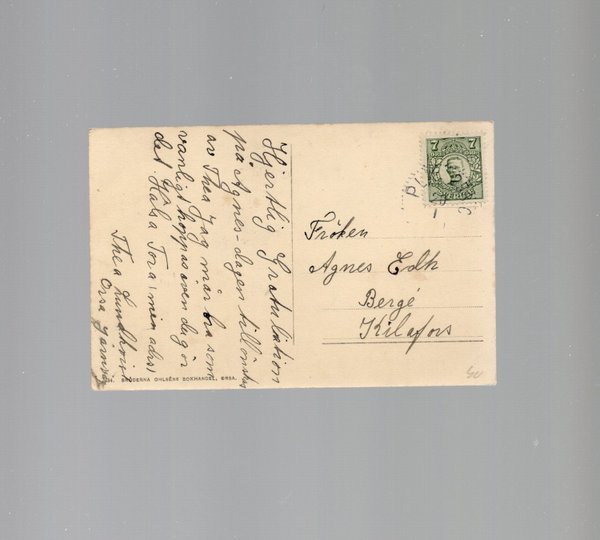 Hjertlig Gratulation
på Agnes-dagen tillönskas
av Thea Jag mår bra som
vanligt hoppas även du gör
det Hälsa Tora; min adrs;
Thea Lundholm
Orsa
7
SVERIGE
Fröken
Agnes Edh
Bergé
Kilafors
OHLSÉNS BOKHANDEL, ORSA.